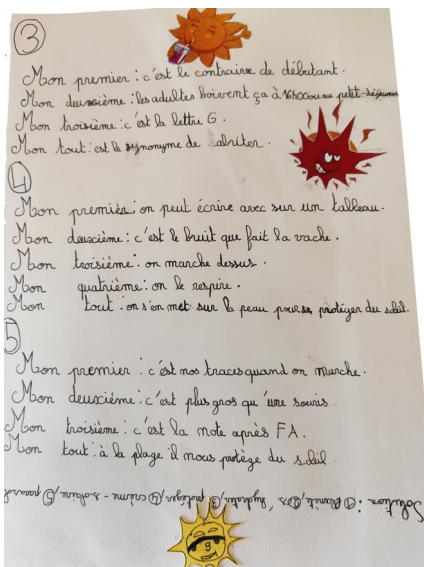 3
Mon premier : c'est le contraire de débutant.
Mon deuxième : les adultes boivent ça à 16h00 ou au petit-déjeuner
Mon troisième : c'est la lettre G.
Mon tout : est le synonyme de abriter.
4
Mon premier : on peut écrire avec sur un tableau.
Mon deuxième : c'est le bruit que fait la vache.
Mon troisième : on marche dessus.
Mon quatrième : on le respire.
Mon tout : on s'en met sur la peau pour se protéger du soleil.
5
Mon premier : c'est nos traces quand on marche.
Mon deuxième : c'est plus gros qu'une souris.
Mon troisième : c'est la note après FA.
Mon tout : à la plage il nous protège du soleil
Solution : ① planète, ② s'hydrater, ③ protéger, ④ crème-solaire, ⑤ parasol